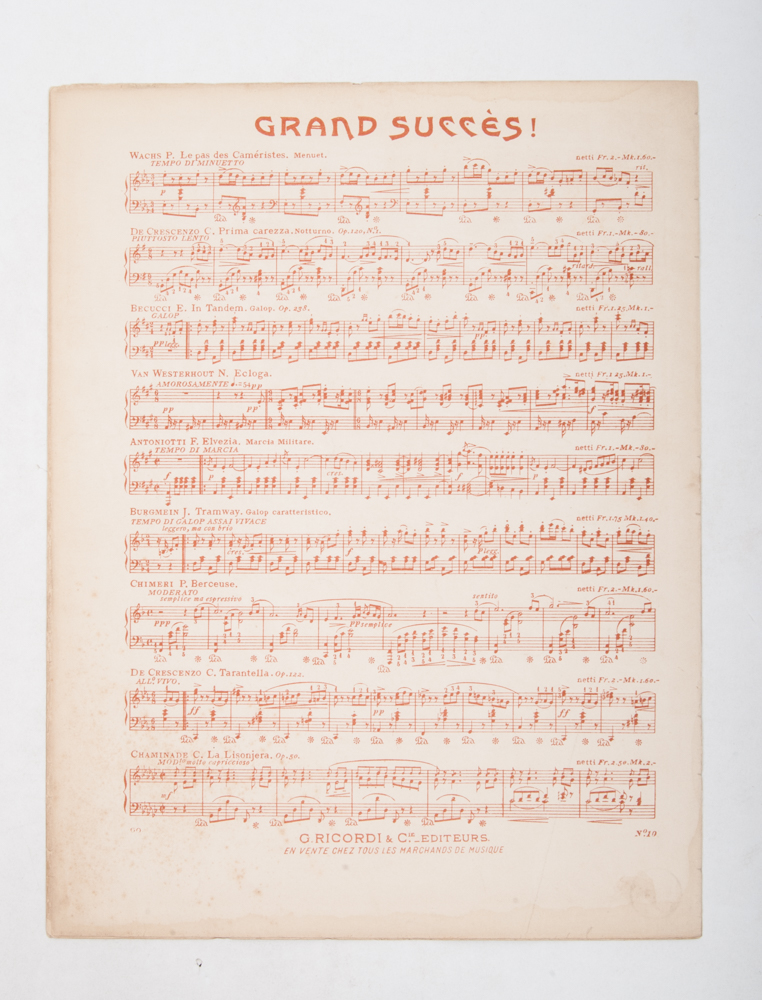 GRAND SUCCÈS!
WACHS P. Le pas des Caméristes. Menuet. netti Fr. 2.-Mk.1.60.-
TEMPO DI MINUETTO rit.
p
DE CRESCENZO C. Prima carezza. Notturno. Op. 120, Nº1. netti Fr.1.-Mk.-80.-
PIUTTOSTO LENTO
ritard. rall.
BECUCCI E. In Tandem. Galop. Op. 258. netti Fr.1.25.Mk.1.-
GALOP
pp
VAN WESTERHOUT N. Ecloga. netti Fr.1 25.Mk.1.-
AMOROSAMENTE
pp pp f
ANTONIOTTI F. Elvezia. Marcia Militare. netti Fr.1.-Mk.-80.-
TEMPO DI MARCIA
f cres. f
BURGMEIN J. Tramway. Galop caratteristico. netti Fr.1.75 Mk.1.40.-
TEMPO DI GALOP ASSAI VIVACE
leggero, ma con brio
cres. f
CHIMERI P. Berceuse. netti Fr.2.-Mk.1.60.-
MODERATO
semplice ma espressivo sentito
ppp pp semplice
DE CRESCENZO C. Tarantella. Op. 122. netti Fr.2.-Mk.1.60.-
ALLº VIVO.
ff pp ff
CHAMINADE C. La Lisonjera. Op. 50. netti Fr.2.50.Mk.2.-
MODto molto capriccioso
mf
Nº10
G. RICORDI & Cie_EDITEURS.
EN VENTE CHEZ TOUS LES MARCHANDS DE MUSIQUE